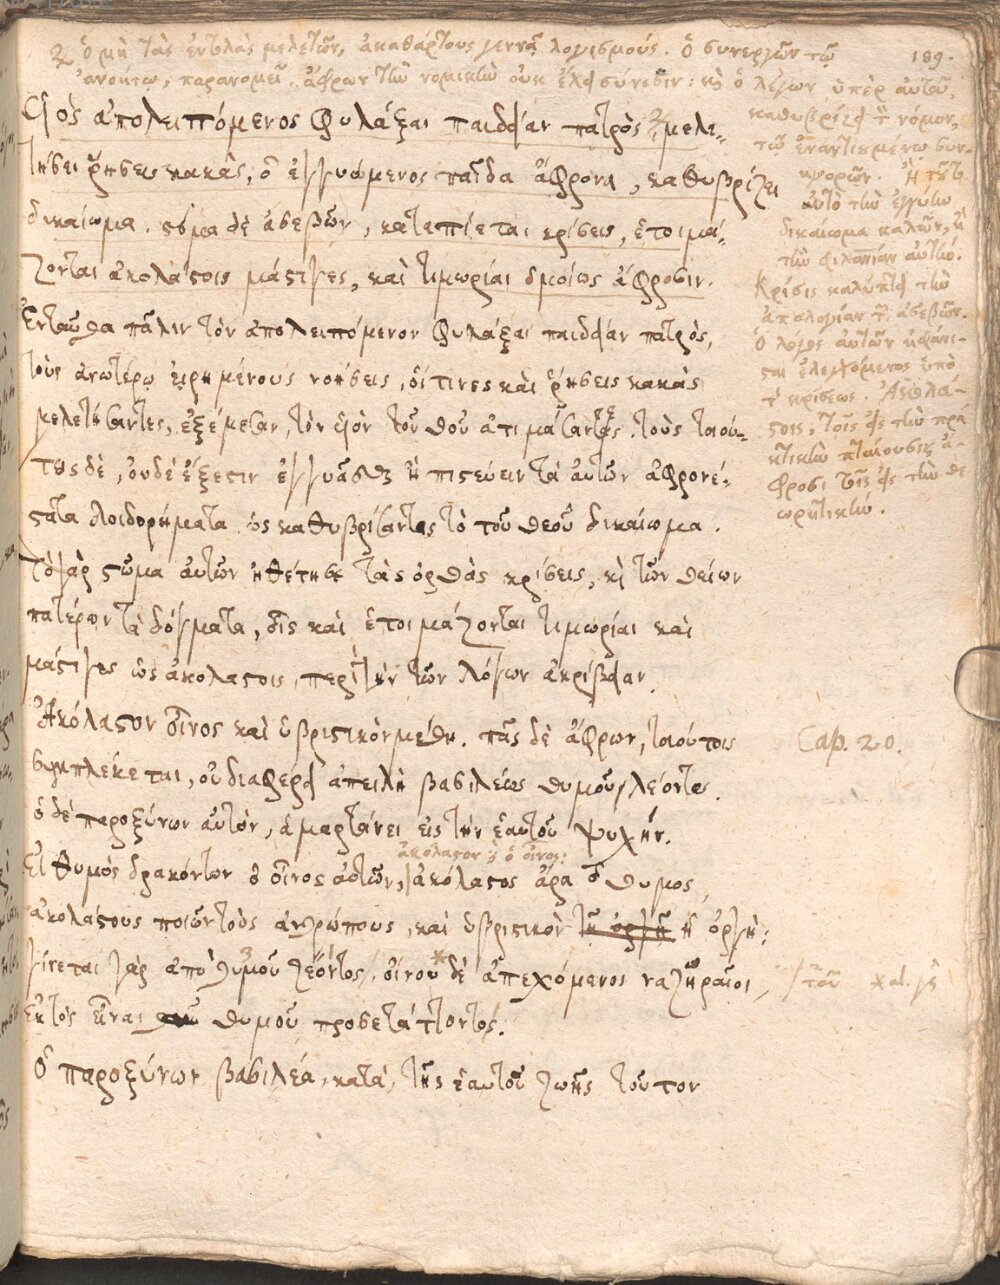 ὁ μὴ τὰς ἐντολὰς μελετῶν, ἀκαθάρτους γεννᾷ λογισμούς. ὁ συνεργῶν τῷ
189.
ἀνοήτῳ, παρανομεῖ. ἄφρων τὴν νομικὴν οὐκ ἔχει σύνεσιν: κὶ ὁ λέγων ὑπὲρ αὐτοῦ,
καθυβρίζει τ νόμον,
τῷ ἐναντιωμένῳ συν-
ηγορῶν.
αὐτὸ τὴν ἐγγύην
δικαίωμα καλῶν,
τὴν φιλαπίαν αὐτῶν.
Κρίσις καλύπτει τὴν
ἀπολογίαν τ ἀσεβῶν.
ὁ λόγος αὐτῶν ἀφανί-
ἐλεγχόμενος ὑπὸ
τ κρίσεως. Ἀκολά-
στοις, τοῖς εἰς τὴν πρα
κτικὴν πταίουσιν, ἄ-
φροσι τοῖς εἰς τὴν θε
ωρητικήν.
Υἱὸς ἀπολειπόμενος φυλάξαι παιδείαν πατρὸς μελε-
τήσει ῥήσεις κακὰς, ὁ ἐγγυώμενος παῖδα ἄφρονα, καθυβρίζει
δικαίωμα. στόμα δὲ ἀσεβῶν, καταπίεται κρίσεις, ἑτοιμά-
ζονται ἀκολάστοις μάστιγες, καὶ τιμωρίαι ὁμοίως ἄφροσιν.
Ἐνταῦθα πάλιν τὸν ἀπολειπόμενον φυλάξαι παιδείαν πατρὸς,
τοὺς ἀνωτέρω εἰρημένους νοήσεις, οἵτινες καὶ ῥήσεις κακὰς
μελετήσαντες, ἐξέμεσαν, τὸν υἱὸν τοῦ θεοῦ ἀτιμάσαντες. τοὺς τοιού-
τους δὲ, οὐδὲ ἔξεστιν ἐγγυᾶσθαι ἢ πιστεύειν τὰ αὐτῶν ἀφρονέ-
στατα λοιδορήματα ὡς καθυβρίσαντας τὸ τοῦ θεοῦ δικαίωμα.
Τὸ γὰρ στῶμα αὐτῶν ἠθέτησε τὰς ὀρθὰς κρίσεις, κὶ τῶν θείων
πατέρων τὰ δόγματα, οἷς καὶ ἑτοιμάζονται τιμωρίαι καὶ
μάστιγες ὡς ἀκολάστοις, περὶ τὴν τῶν λόγων ἀκρίβειαν.
Ἀκόλαστον οἶνος καὶ ὑβριστικὸν μέθη. πᾶς δὲ ἄφρων, τοιούτοις
Cap. 20.
συμπλέκεται, οὐ διαφέρει ἀπειλὴ βασιλέως θυμοῦ λέοντος.
ὁ δὲ παροξύνων αὐτὸν, ἁμαρτάνει εἰς τὴν ἑαυτοῦ ψυχήν.
ἀκόλαστον ὁ οἶνος:
Εἰ θυμὸς δρακόντων ὁ οἶνος αὐτῶν, ἀκόλαστος ἄρα ὁ θυμος,
ἀκολάστους ποιῶν τοὺς ἀνθρώπους, καὶ ὑβριστικὸν τῇ ὀργῇ ἡ ὀργή:
γίνεται γὰρ ἀπὸ θυμοῦ ζέοντος. οἴνου δὲ ἀπεχόμενοι ναζηραῖοι,
τοῦ
ἐκτὸς εἶναι θυμοῦ προσετάττοντο.
Ὁ παροξύνων βασιλέα, κατὰ τῆς ἑαυτοῦ ζωῆς τοῦτον